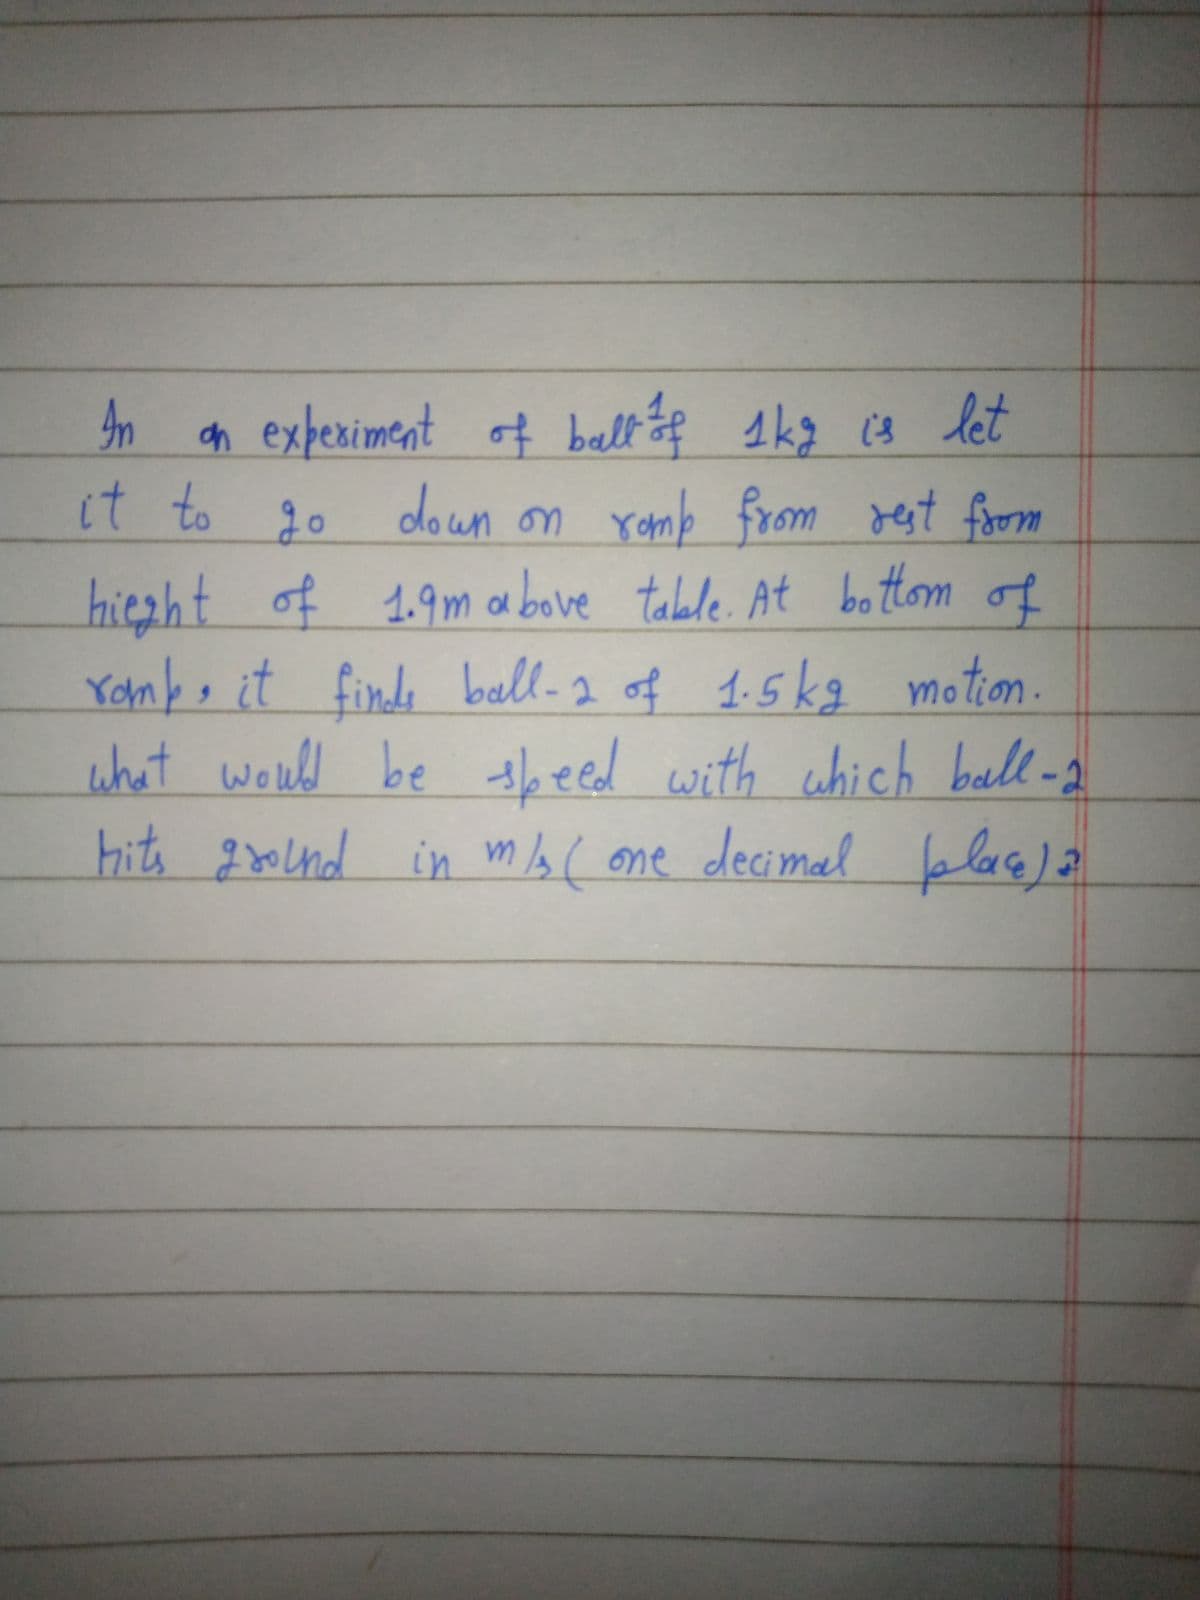 In an experiment of ball 1 of 1kg is let
it to go down on ramp from rest from
hieght of 1.9m above table. At bottom of
ramp, it finds ball-2 of 1.5kg motion.
what would be speed with which ball-2
hits ground in m/s ( one decimal place)?